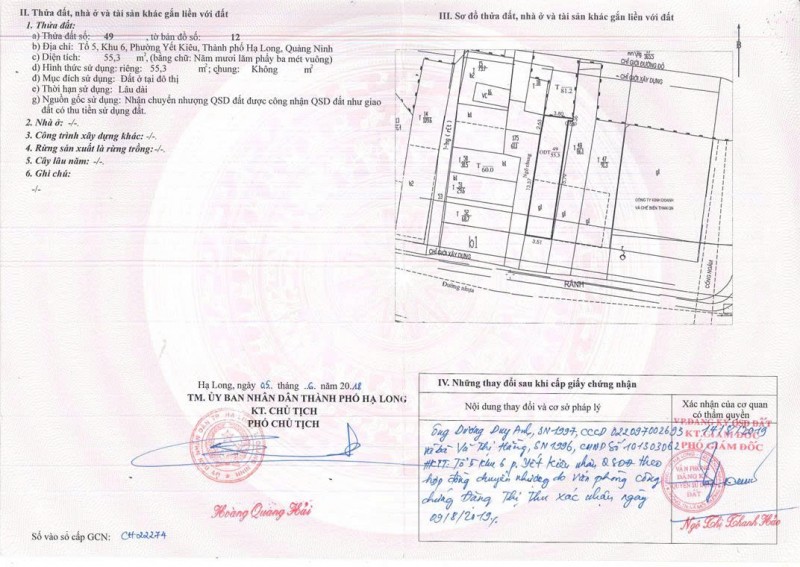 II. Thửa đất, nhà ở và tài sản khác gắn liền với đất
1. Thửa đất:
a) Thửa đất số: 49 , tờ bản đồ số: 12
b) Địa chỉ: Tổ 5, Khu 6, Phường Yết Kiêu, Thành phố Hạ Long, Quảng Ninh
c) Diện tích: 55,3 m², (bằng chữ: Năm mươi lăm phẩy ba mét vuông)
d) Hình thức sử dụng: riêng: 55,3 m²; chung: Không m²
đ) Mục đích sử dụng: Đất ở tại đô thị
e) Thời hạn sử dụng: Lâu dài
g) Nguồn gốc sử dụng: Nhận chuyển nhượng QSD đất được công nhận QSD đất như giao
đất có thu tiền sử dụng đất.
2. Nhà ở: -/-.
3. Công trình xây dựng khác: -/-.
4. Rừng sản xuất là rừng trồng: -/-.
5. Cây lâu năm: -/-.
6. Ghi chú:
-/-
III. Sơ đồ thửa đất, nhà ở và tài sản khác gắn liền với đất
B
CHỈ GIỚI ĐƯỜNG ĐỎ
CHỈ GIỚI XÂY DỰNG
T 61.2
T 60.0
ODT 49 55.3
Ngõ chung
13.57
3.61
CÔNG TY KINH DOANH
VÀ CHẾ BIẾN THAN QN
b1
CHỈ GIỚI XÂY DỰNG
RÃNH
Đường nhựa
CỐNG NGẦM
Hạ Long, ngày 05 tháng 6 năm 2018
TM. ỦY BAN NHÂN DÂN THÀNH PHỐ HẠ LONG
KT. CHỦ TỊCH
PHÓ CHỦ TỊCH
Hoàng Quang Hải
Số vào sổ cấp GCN: CH 02274
IV. Những thay đổi sau khi cấp giấy chứng nhận
Nội dung thay đổi và cơ sở pháp lý
Xác nhận của cơ quan
có thẩm quyền
Ông Dương Duy Anh, SN 1997, CCCD 022097002695
và bà Vũ Thị Hằng, SN 1996, CMND số 101303062
HKTT: Tổ 5 khu 6 p. Yết Kiêu nhận QSDĐ theo
hợp đồng chuyển nhượng do Văn phòng công
chứng Đặng Thị Thu xác nhận ngày
09/8/2019.
VP ĐĂNG KÝ QSD ĐẤT
14/8/2019
KT. GIÁM ĐỐC
PHÓ GIÁM ĐỐC
Ngô Thị Thanh Hảo